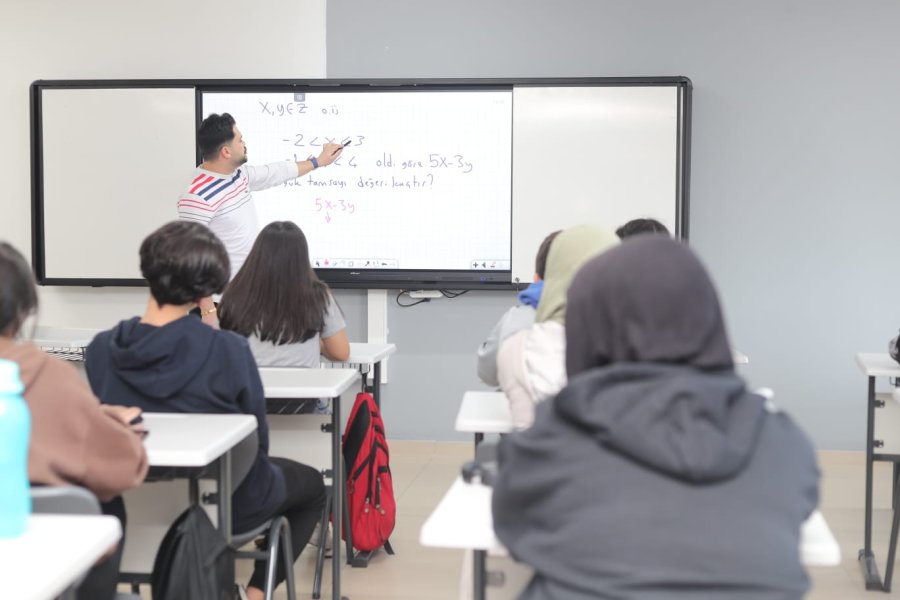 x, y ∈ Z o.üs
-2 < x < 3
< 4 old. göre 5x-3y
tamsayı değeri kaçtır?
5x-3y